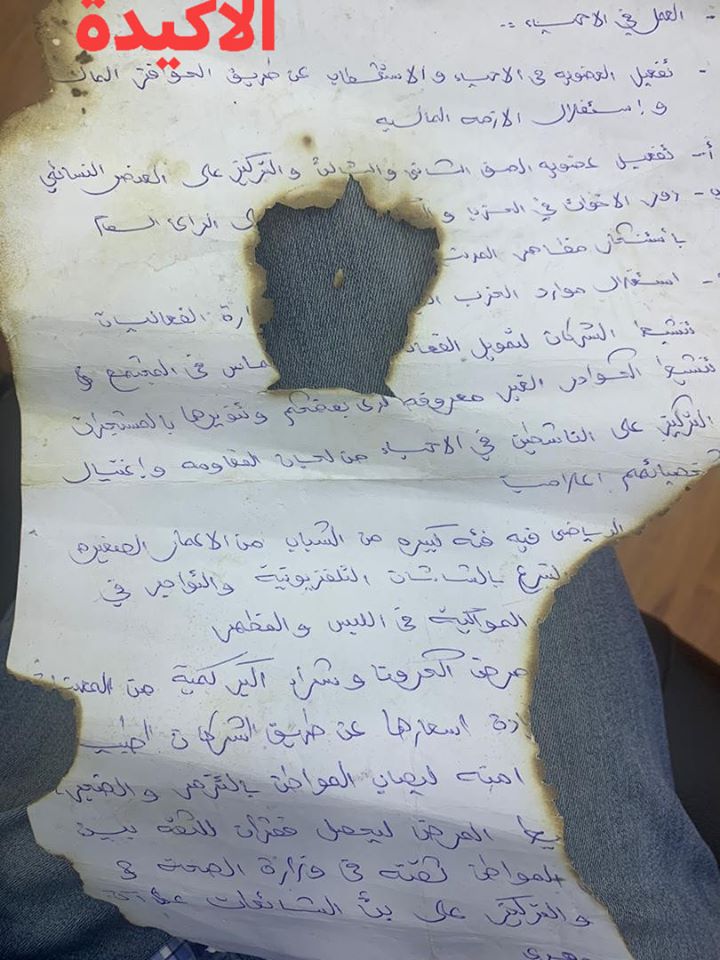 الاكيدة
- العمل في الاحياء ..
- تفعيل العضويه في الاحياء والاستقطاب عن طريق الحوافز الماليه
و إستغلال الازمه الماليه
أ- تفعيل عضويه الصف الثاني والثالث والتركيز على العنصر النسائي
- دور الاخوات في الحزب و الرأي العام
بأستنكار مظاهر
- استغلال موارد الحزب ارة الفعاليات
تشجيع الشركات لتمويل الفعا ماس في المجتمع في
تشجيع الكوادر الغير معروفه لدى بعضكم وتنويرها بالمستجدات
التركيز على الناشطين في الاحياء من لجان المقاومه وإغتيال
شخصياتهم اعلاميا
الرياضي فيه فئه كبيره من الشباب من الاعمار الصغيره
لتبرع بالشاشات التلفزيونية والتواجد في
المواكبة في اللبس والمظهر
مرض الكرونا وشراء اكبر كمية من
ادة اسعارها عن طريق الشركات
امنه ليصاب المواطن بالتذمر و
يع المرض ليحصل فقدان للثقه بين
المواطن ثقته في وزارة الصحة في
والتركيز على بث الشائعات